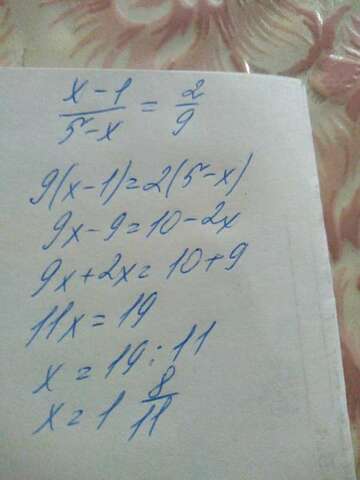 x-1/5-x = 2/9
9(x-1)=2(5-x)
9x-9=10-2x
9x+2x=10+9
11x=19
x=19:11
x=1 8/11